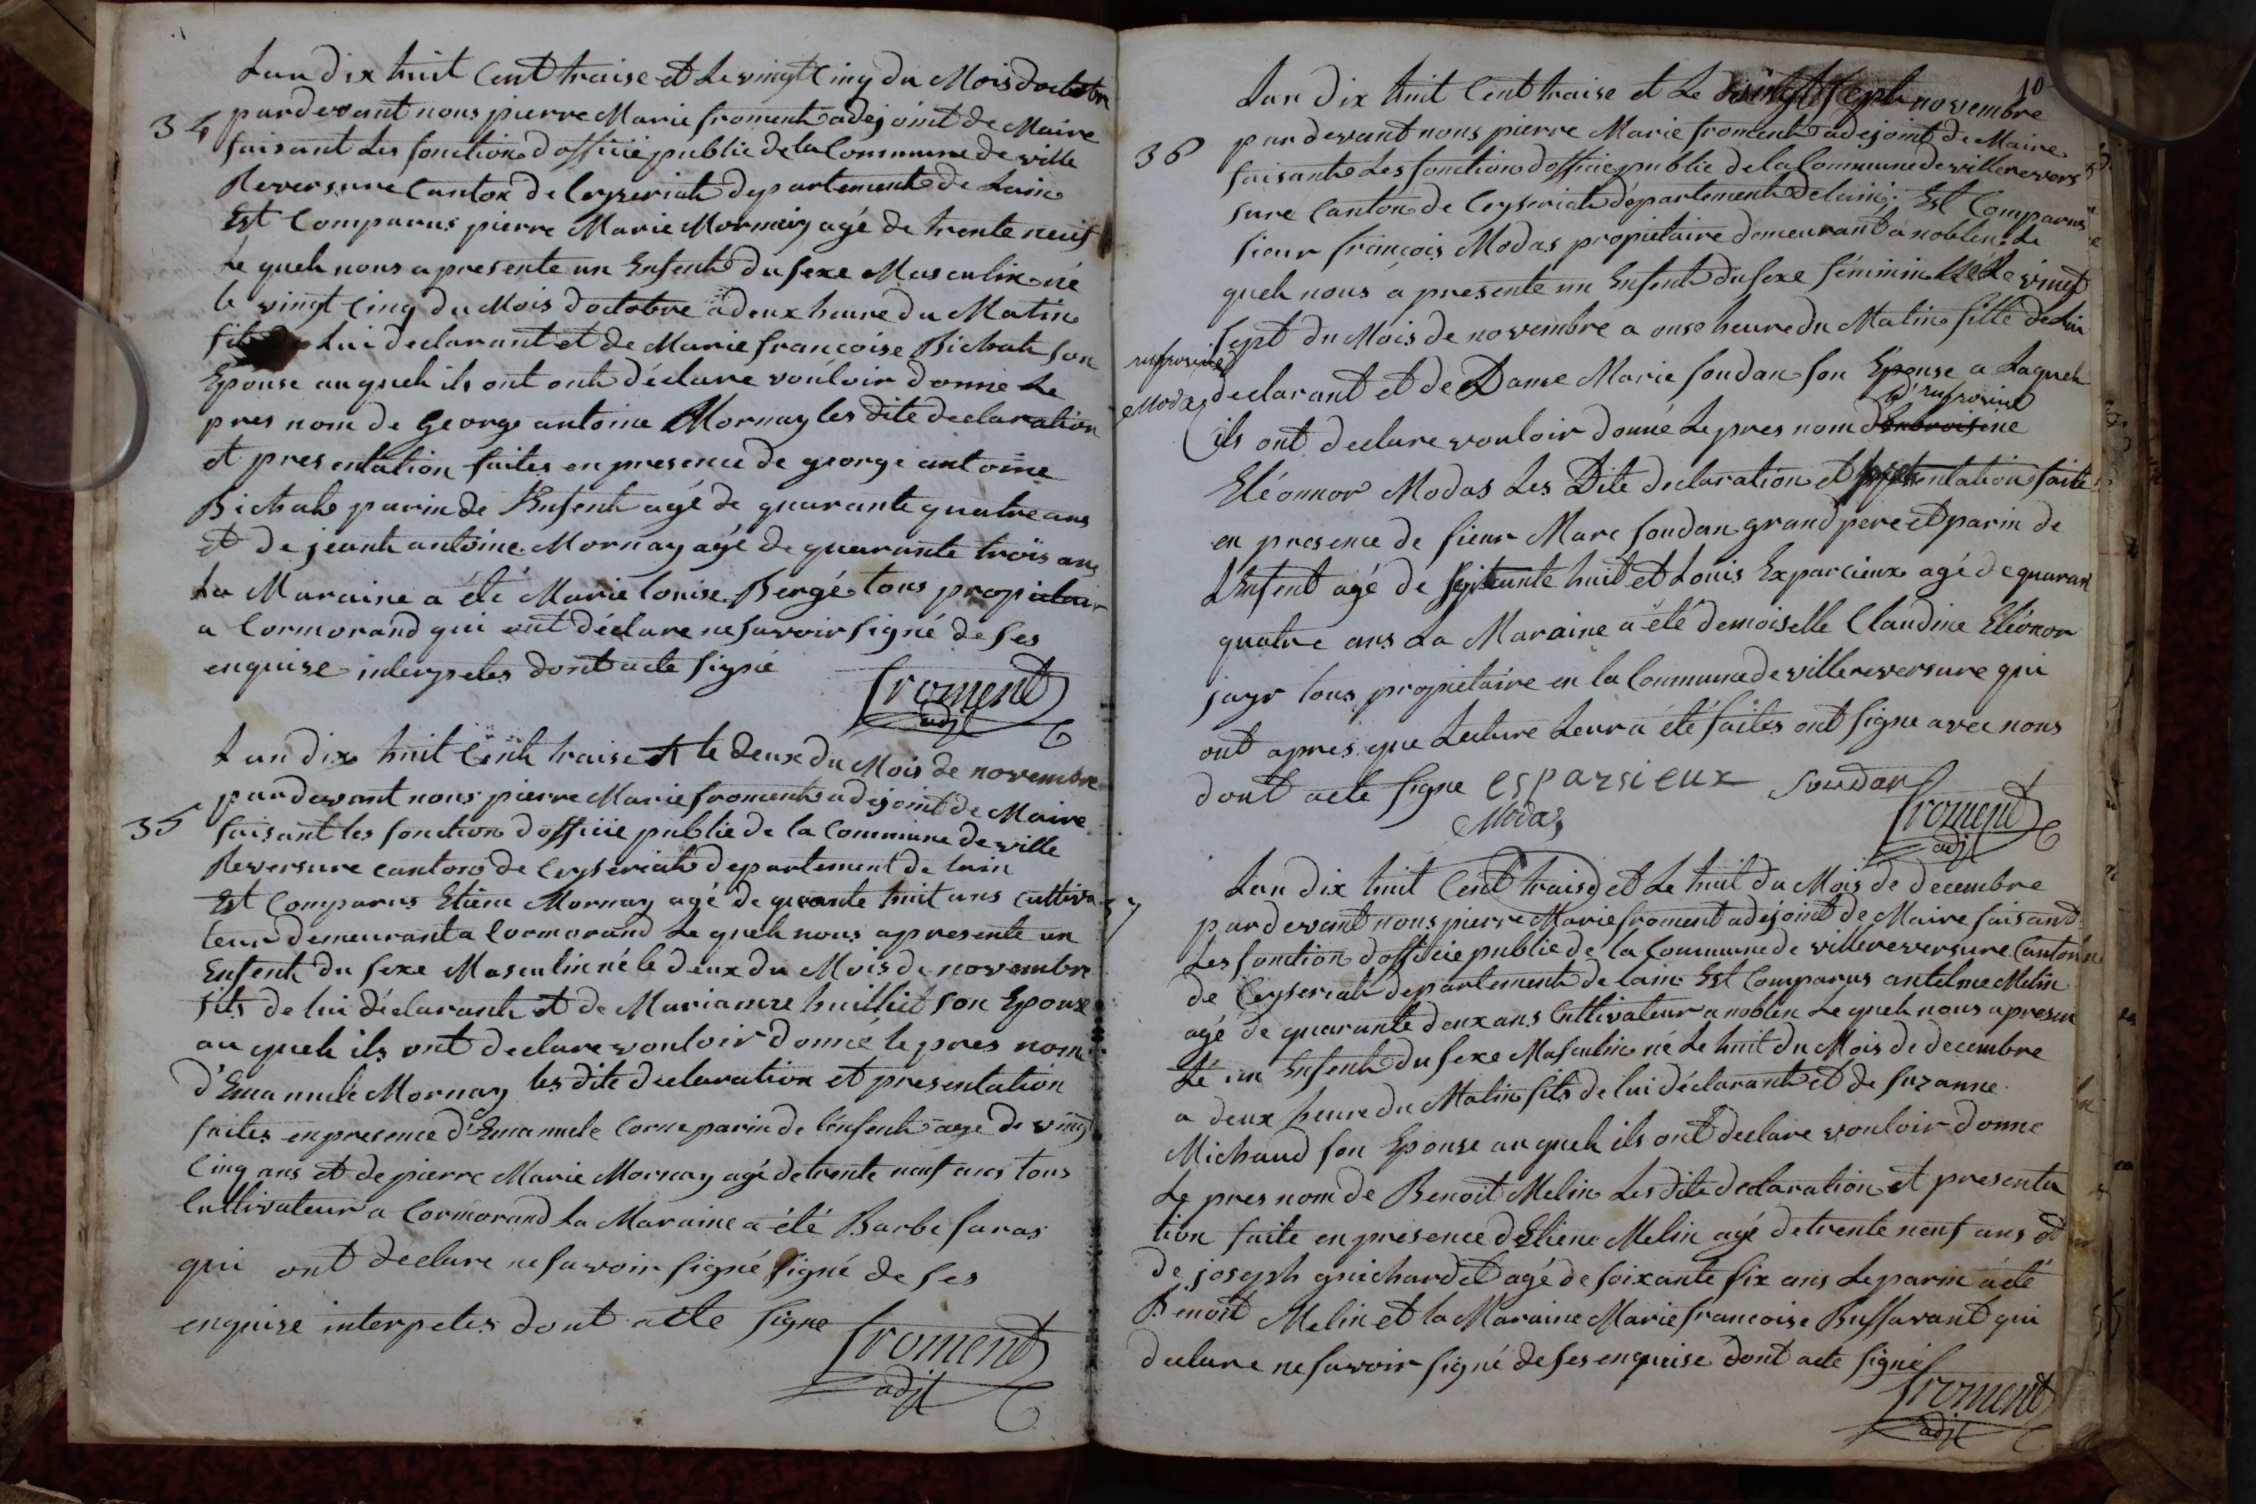 Lan dix huit Cent traise et Le vingt Cinq du Mois doctobre
34
pardevant nous pierre Marie froment adejoint de Maire
faisant Les fonction d'officié public de la Commune de ville
Reversure Canton de Ceyseriat departement de Lain
Est Comparus pierre Marie Mornay agé de trente neuf
Le quel nous a presente un Enfent du sexe Masculin né
le vingt Cinq du Mois doctobre a deux heure du Matin
fils de Lui declarant et de Marie françoise Bichat son
Epouse au quel ils ont ont déclare vouloir donné Le
pres nom de George antoine Mornay les dite declaration
et presentation faites en presence de george antoine
Bichat parin de l'Enfent agé de quarante quatre ans
et de jeant antoine Mornay agé de quarante trois ans
La Maraine a été Marie Louise Bergé tous propietair
a Cormorand qui ont déclare ne savoir signé de ses
enquise interpeles dont acte signé
froment
adjt
Lan dix huit Cent traise et le deux du Mois de novembre
pardevant nous pierre Marie froment adejoint de Maire
35
faisant les fonction d'officié public de la Commune de ville
Reversure canton de Ceyseriat departement de lain
Est Comparus Etiene Mornay agé de quarante huit ans cultiva
teur demeurant a Cormorand Le quel nous a presente un
Enfent du sexe Masculin né le deux du Mois de novembre
fils de lui déclarant et de Marianne huilliet son Epouse
au quel ils ont declare vouloir donné le pres nom
d'Emanuele Mornay les dite declaration et presentation
faites en presence d'Emanuele Corne parin de l'enfent age de vingt
Cinq ans et de pierre Marie Mornay agé de trente neuf ans tous
Cultivateur a Cormorand La Maraine a été Barbe faras
qui ont declare ne savoir signé signé de ses
enquise interpeles dont acte signe
froment
adjt
10
Lan dix huit Cent traise et Le vingt sept novembre
36
pardevant nous pierre Marie froment adejoint de Maire
faisant Les fonction d'officié public de la Commune de villerevers
sure Canton de Ceyseriat département de lain. Est Comparus
sieur françois Modas propietaire demeurant a noblen Le
quel nous a presente un Enfent du sexe féminin née Le vingt
sept du Mois de novembre a onse heure du Matin fille de Lui
declarant et de Dame Marie soudan son Epouse a Laquel
Modas
ils ont declare vouloir donné Le pres nom
Eléonnor Modas Les Dite declaration et presentation faite
en presence de sieur Marc soudan grand pere et parin de
L'Enfent agé de septante huit et Louis Exparcieux agé de quarant
quatre ans La Maraine a été demoiselle Claudine Eléonor
jayr tous propietaire en la Commune de villereversure qui
ont apres que Lecture Leur a été faites ont signe avec nous
dont acte signe esparsieux soudan
Modas
froment
adjt
Lan dix huit Cent traise et Le huit du Mois de decembre
37
pardevant nous pierre Marie froment adejoint de Maire faisant
Les fonction d'officié public de la Commune de villereversure Canton
de Ceyseriat departement de lain Est Comparus antelme Melin
agé de quarante deux ans Cultivateur a noblen Le quel nous a presen
té un Enfent du sexe Masculin né Le huit du Mois de decembre
a deux heure du Matin fils de lui déclarant et de suzanne
Michaud son Epouse au quel ils ont declare vouloir donne
Le pres nom de Benoit Melin Les dite declaration et presenta
tion faite en presence d'Etiene Melin agé de trente neuf ans et
de joseph guichardet agé de soixante six ans Le parin a été
Benoit Melin et la Maraine Marie francoise Buffavant qui
declare ne savoir signé de ses enquise dont acte signé
froment
adjt